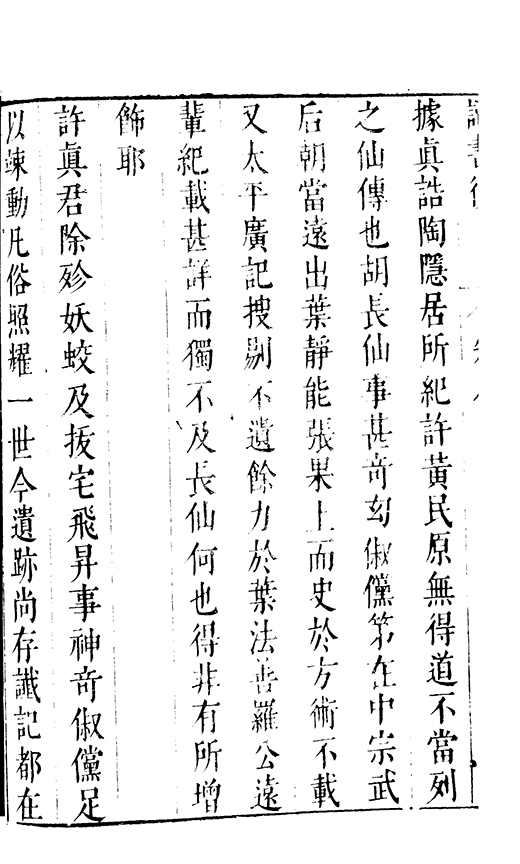 據眞誥陶隱居所紀許黃民原無得道不當列
之仙傳也胡長仙事甚奇幻俶儻第在中宗武
后朝當遠出葉靜能張果上而史於方術不載
又太平廣記搜剔不遺餘力於葉法善羅公遠
輩紀載甚詳而獨不及長仙何也得非有所增
飾耶
許眞君除殄妖蛟及拔宅飛昇事神奇俶儻足
以竦動凡俗照耀一世今遺跡尚存讖記都在